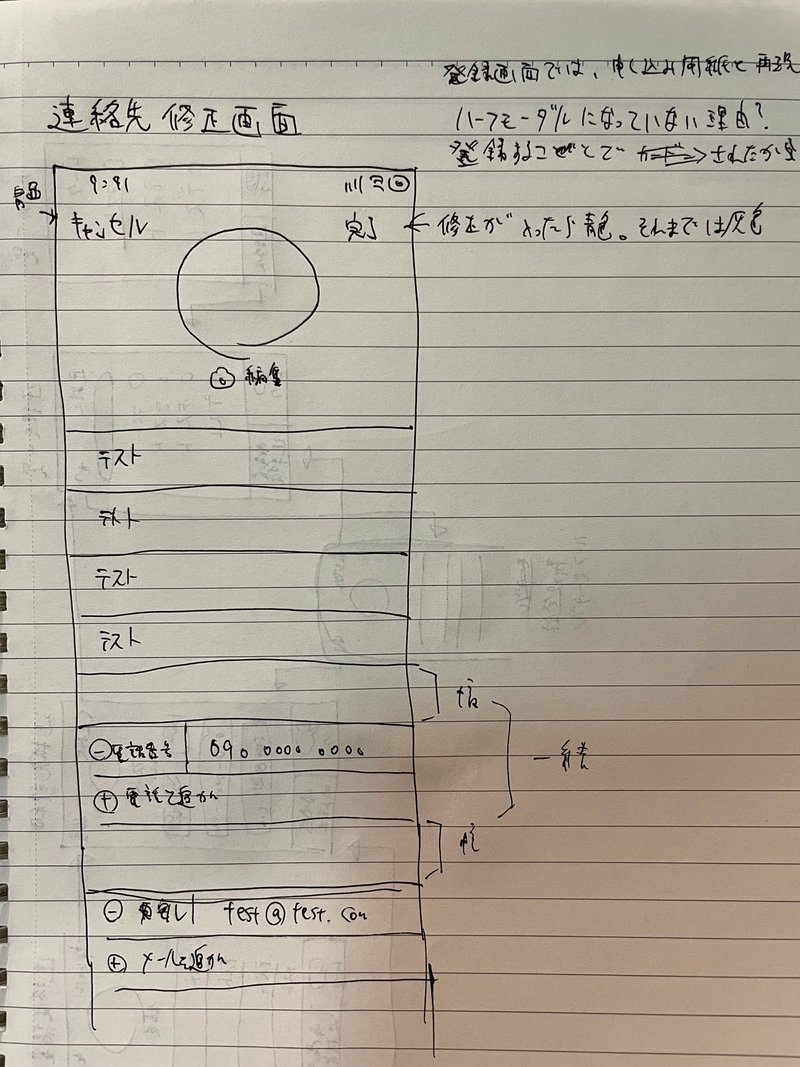 登録画面では、申し込み用紙を再現
ハーフモーダルになっていない理由?
登録することで されたか
連絡先 修正画面
9:41
キャンセル
完了
← 修正があったら青色。それまでは灰色
編集
テスト
テスト
テスト
テスト
一緒
電話番号 090 0000 0000
電話を追加
test@test.com
メールを追加